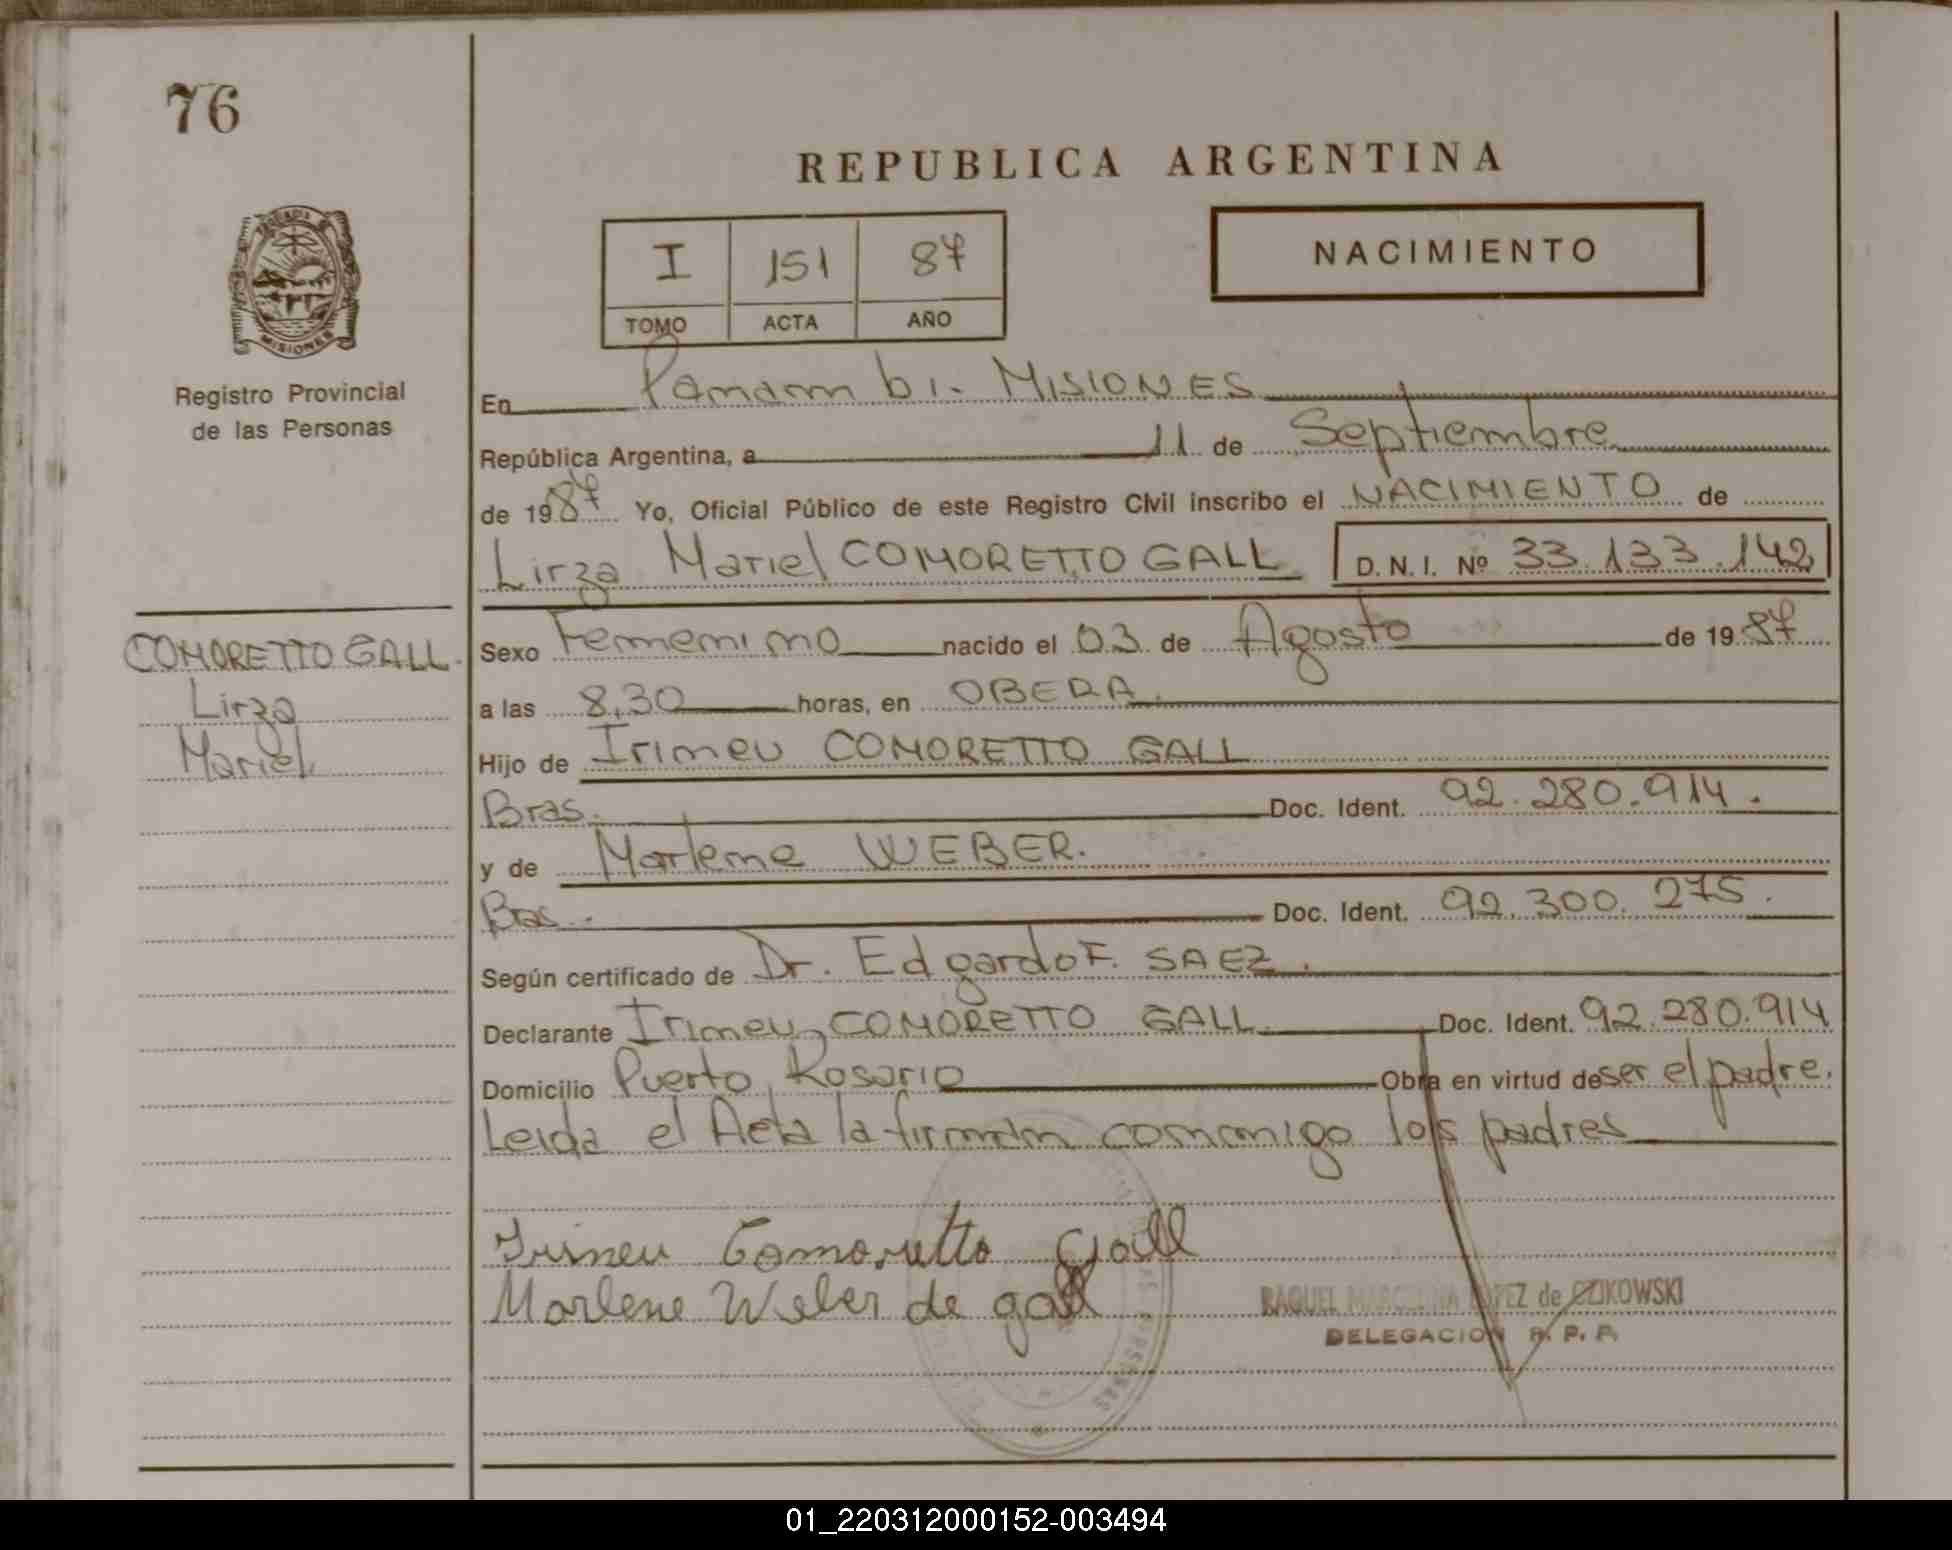 76
REPUBLICA ARGENTINA
I 151 87
TOMO ACTA AÑO
NACIMIENTO
MISIONES
Registro Provincial
de las Personas
En Panambi - MISIONES
República Argentina, a 11 de Septiembre
de 1987 Yo, Oficial Público de este Registro Civil inscribo el NACIMIENTO de
Lirza Mariel COMORETTO GALL D. N. I. Nº 33.133.142
COMORETTO GALL.
Lirza
Mariel
Sexo Femenino nacido el 03 de Agosto de 1987
a las 8,30 horas, en OBERA.
Hijo de Irineu COMORETTO GALL
Bras. Doc. Ident. 92.280.914.
y de Marlene WEBER.
Bras. Doc. Ident. 92.300.275.
Según certificado de Dr. Edgardo F. SAEZ.
Declarante Irineu COMORETTO GALL Doc. Ident. 92.280.914
Domicilio Puerto Rosario Obra en virtud de ser el padre.
Leida el Acta la firman conmigo los padres
Irineu Comoretto Gall
Marlene Weber de gall
RAQUEL MARCELINA LOPEZ de CZIKOWSKI
DELEGACION R. P. P.
01_220312000152-003494